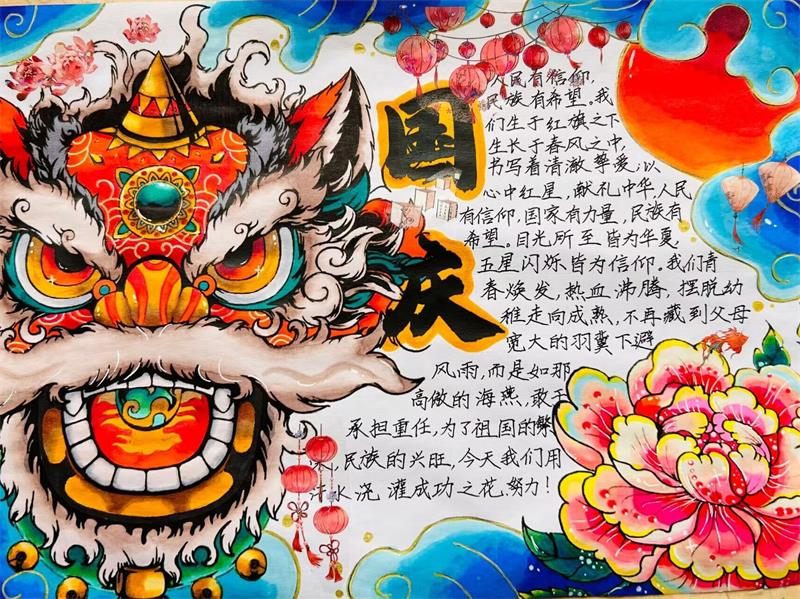 国庆
人民有信仰,
民族有希望。我
们生于红旗之下
生长于春风之中,
书写着清澈挚爱,以
心中红星,献礼中华人民
有信仰,国家有力量,民族有
希望。目光所至皆为华夏
五星闪烁皆为信仰。我们青
春焕发,热血沸腾,摆脱幼
稚走向成熟,不再藏到父母
宽大的羽翼下避
风雨,而是如那
高傲的海燕,敢于
承担重任,为了祖国的繁
,民族的兴旺,今天我们用
水浇灌成功之花,努力!